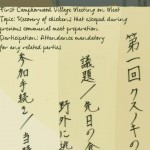 First Camphorwood Village Meeting on Meat
Topic: Recovery of chickens that escaped during
communal meat preparation.
Participation: Attendance mandatory
for any related parties
第一回クスノキの
議題/先日の食
野外に逃
参加手続き/当